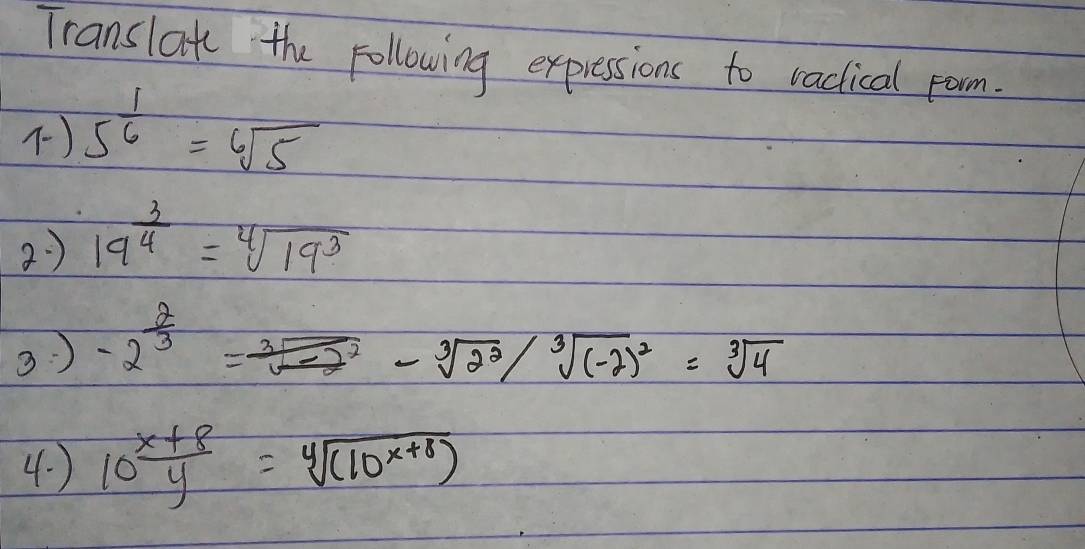 Translate the following expressions to radical form.
1.) 5^(1/6) = ⁶√5
2.) 19^(3/4) = ⁴√19³
3.) -2^(2/3) = ³√-2² - ³√2² / ³√(-2)² = ³√4
4.) 10^((x+8)/y) = ʸ√(10^(x+8))